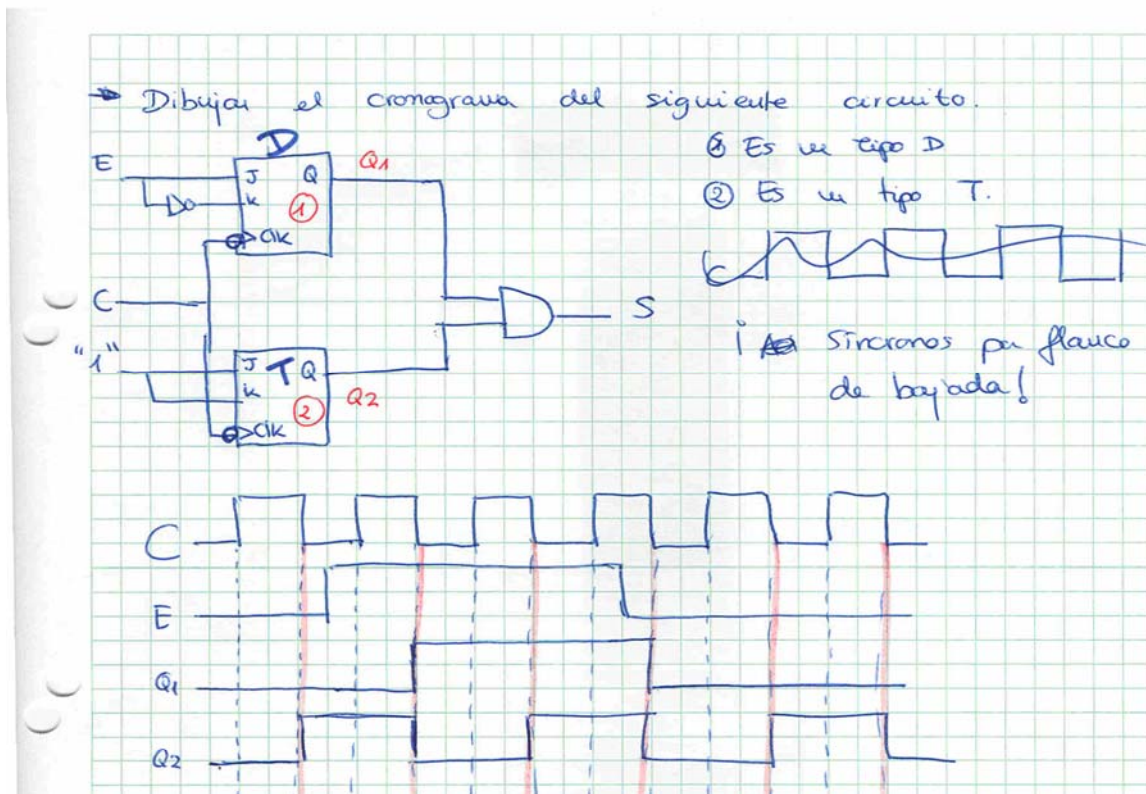 → Dibujar el cronograma del siguiente circuito.
D
E
J Q
K
①
>Clk
Q1
① Es un tipo D
② Es un tipo T.
C
C
S
"1"
J T Q
K
②
>Clk
Q2
¡ Síncronos por flanco
de bajada!
C
E
Q1
Q2